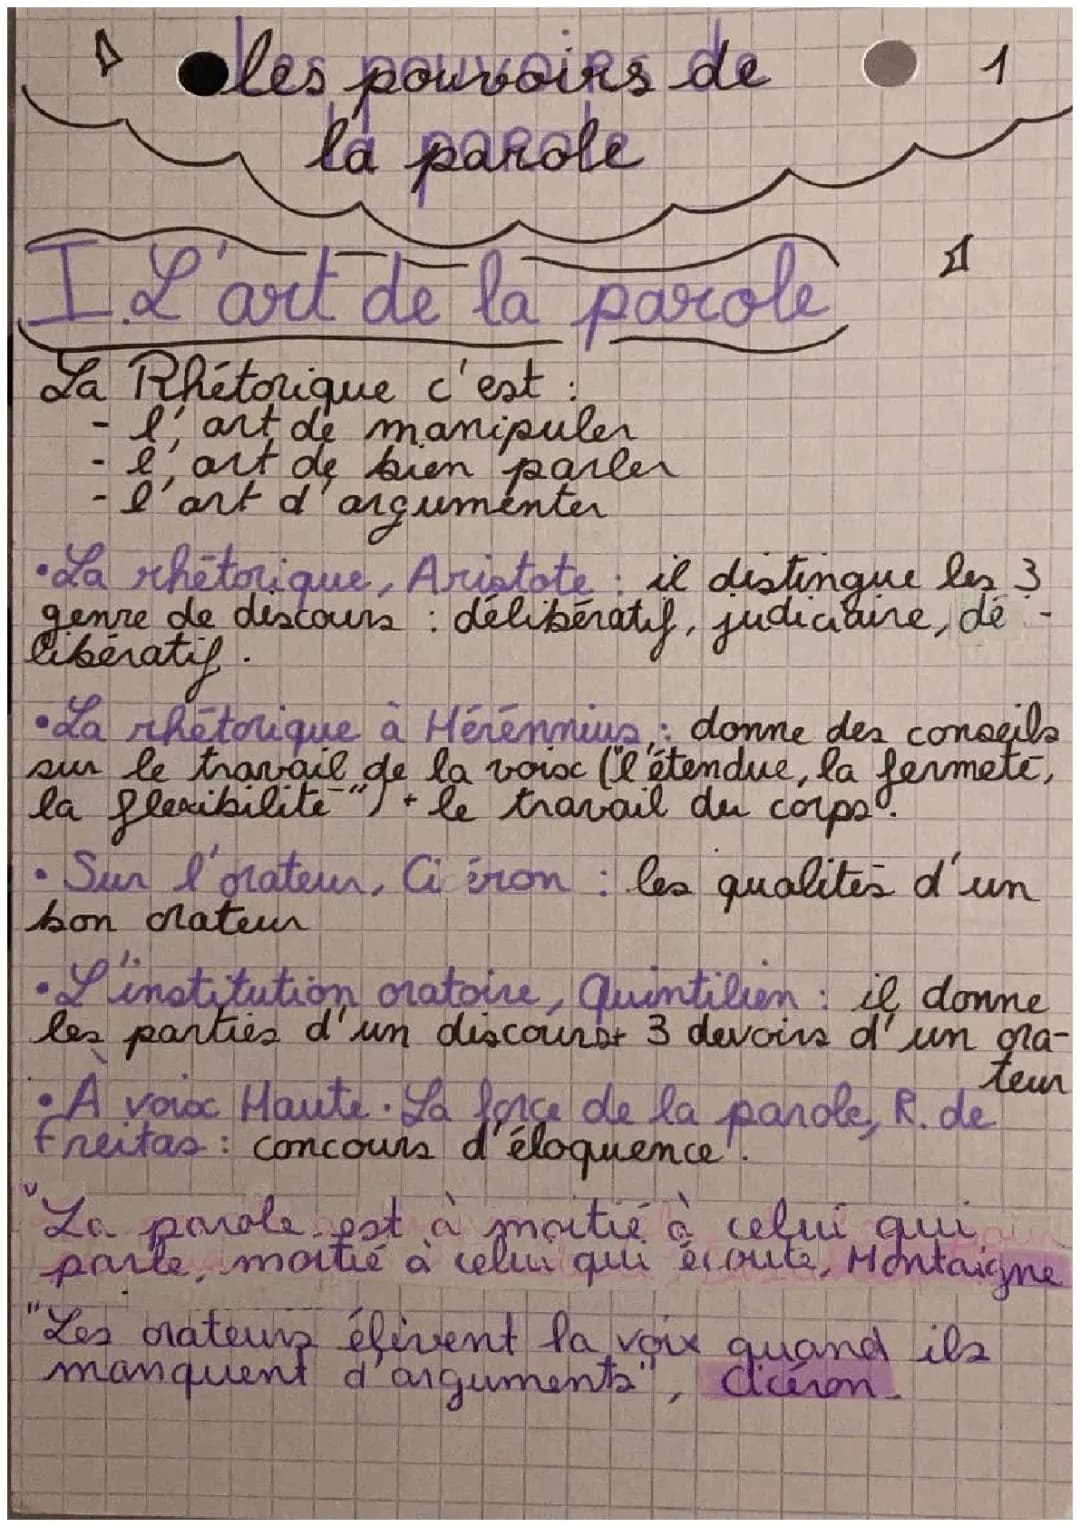 les pouvoirs de
1
la parole
I. L'art de la parole
La Rhétorique c'est :
- l'art de manipuler
- l'art de bien parler
- l'art d'argumenter
• La rhétorique, Aristote : il distingue les 3
genre de discours : délibératif, judiciaire, dé-
libératif.
• La rhétorique à Hérénnius : donne des conseils
sur le travail de la voix ("l'étendue, la fermeté,
la flexibilité") + le travail du corps.
• Sur l'orateur, Ci éron : les qualités d'un
bon orateur
• L'institution oratoire, Quintilien : il donne
les parties d'un discours+ 3 devoirs d'un ora-
teur
• À voix Haute. La force de la parole, R. de
Freitas : concours d'éloquence.
"La parole est à moitié à celui qui
parle, moitié à celui qui écoute, Montaigne
"Les orateurs élèvent la voix quand ils
manquent d'arguments", Cicéron.